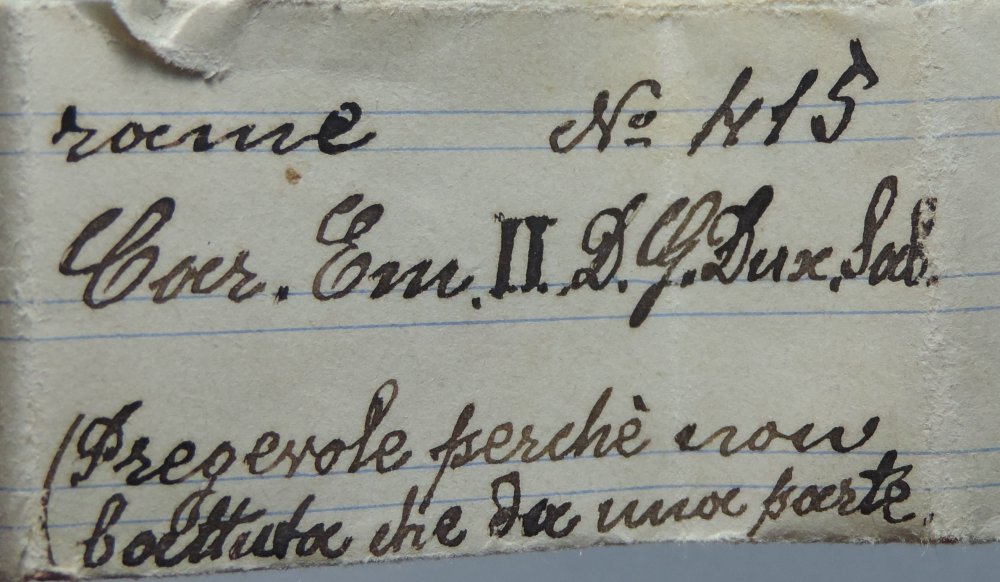 rame Nº 415
Car. Em. II. D. G. Dux. Sab.
(Pregevole perchè non
battuta che da una parte.